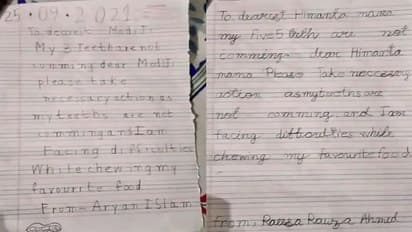 25.09.2021
To dearest Modi Ji
My 3 Teeth are not
comming dear Modi Ji
please take
necessary action as
my teeths are not
comming and I am
Facing difficulties
While chewing my
favourite food
From - Aryan ISlam
To, dearest Himanta mama
my five 5 teeth are not
comming. dear Himanta
mama Please Take neccessory
action as my teeths are
not comming. and I am
facing difficulties while
chewing my favourite food
From, Rawza Rawza Ahmed